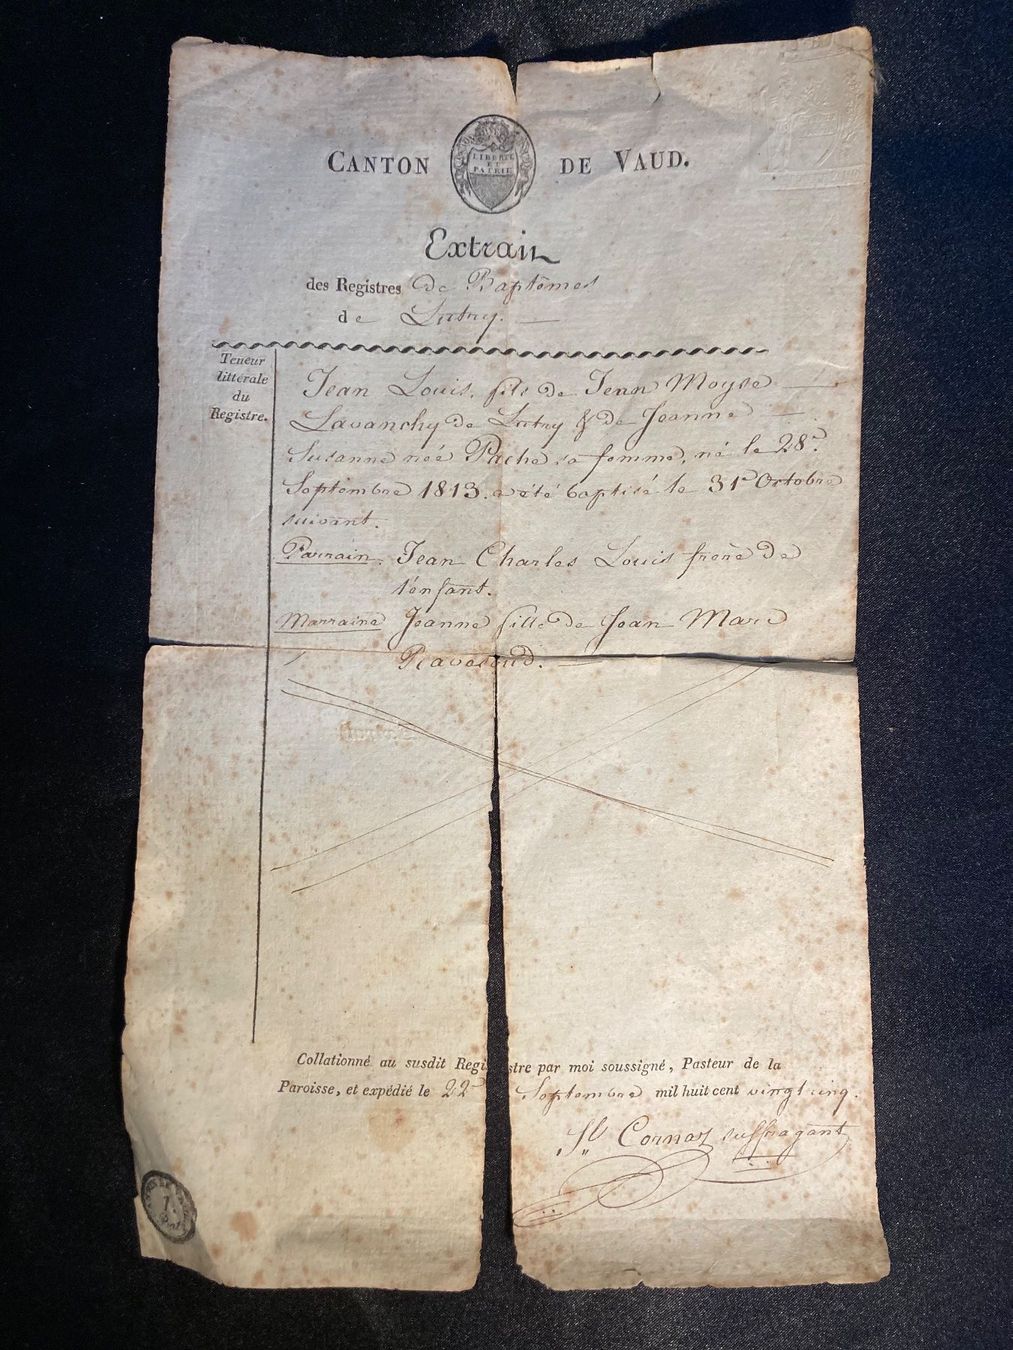 CANTON DE VAUD.
LIBERTÉ
ET
PATRIE
Extrait
des Registres de Baptêmes
de Lutry.
Teneur
littérale
du
Registre.
Jean Louis, fils de Jean Moyse
Lavanchy de Lutry & de Jeanne
Susanne née Pache sa femme, né le 28e
Septembre 1813. a été baptisé le 31e Octobre
suivant.
Parrain. Jean Charles Louis frere de
l'enfant.
Marraine Jeanne fille de Jean Marc
Collationné au susdit Registre par moi soussigné, Pasteur de la
Paroisse, et expédié le 22e Septembre mil huit cent vingt cinq.
Cornaz suffragant